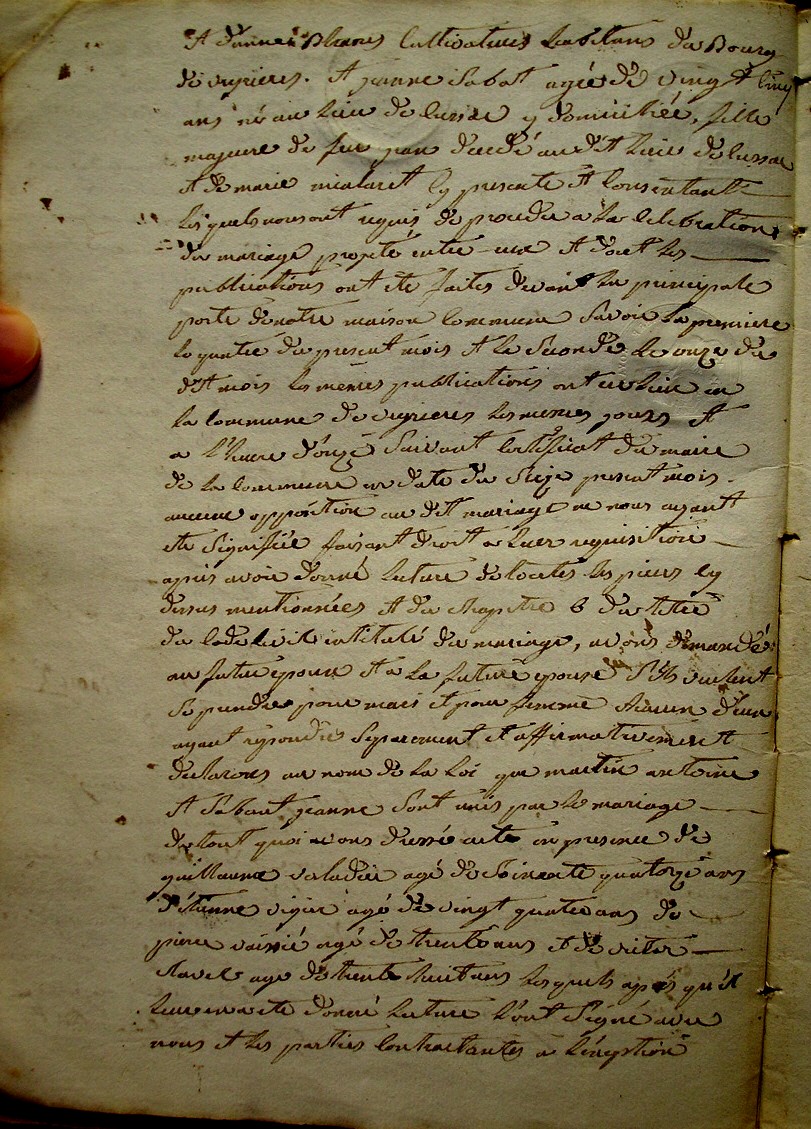 Et d'anne Blanes Cultivateurs habitans du Bourg
de vezieres. Et jeanne Sabot agée de vingt Cinq
ans né au lieu de lussac y domiciliée, fille
majeure de feu jean décédé au dit lieu de lussac
Et de marie Cy presente Et Consentante
les quels nous ont requis de proceder a la Celebration
du mariage projeté entre eux Et dont les
publications ont été faites devant la principale
porte de notre maison Commune Savoir la premiere
le quatre du present mois Et la Seconde le onze du
dit mois les mêmes publications ont eu lieu en
la Commune de vezieres les memes jours Et
a l'heure d'onze Suivant Certificat du maire
de la Commune en date du Seize present mois.
aucune opposition au dit mariage ne nous ayant
été Signifiée faisant droit a leur requisition
apres avoir donné lecture de toutes les pieces Cy
dessus mentionnées Et du chapitre 6 du titre
du Code Civil intitulé du mariage, avons demandé
au futur epoux Et a la future epouse S'ils veulent
Se prendre pour mari Et pour femme chacun d'eux
ayant repondu Separement Et affirmativement
declarons au nom de la Loi que martin antoine
Et Sabaut jeanne Sont unis par le mariage
de tout quoi avons dressé acte en presence de
guillaume valadier agé de Soixante quatorze ans
d'étienne vigier agé de vingt quatre ans de
pierre vaissié agé de trente ans Et de victor
Clavel age de trente huit ans les quels après qu'il
leur en a été donné lecture l'ont Signé avec
nous Et les parties Contractantes a l'exeption